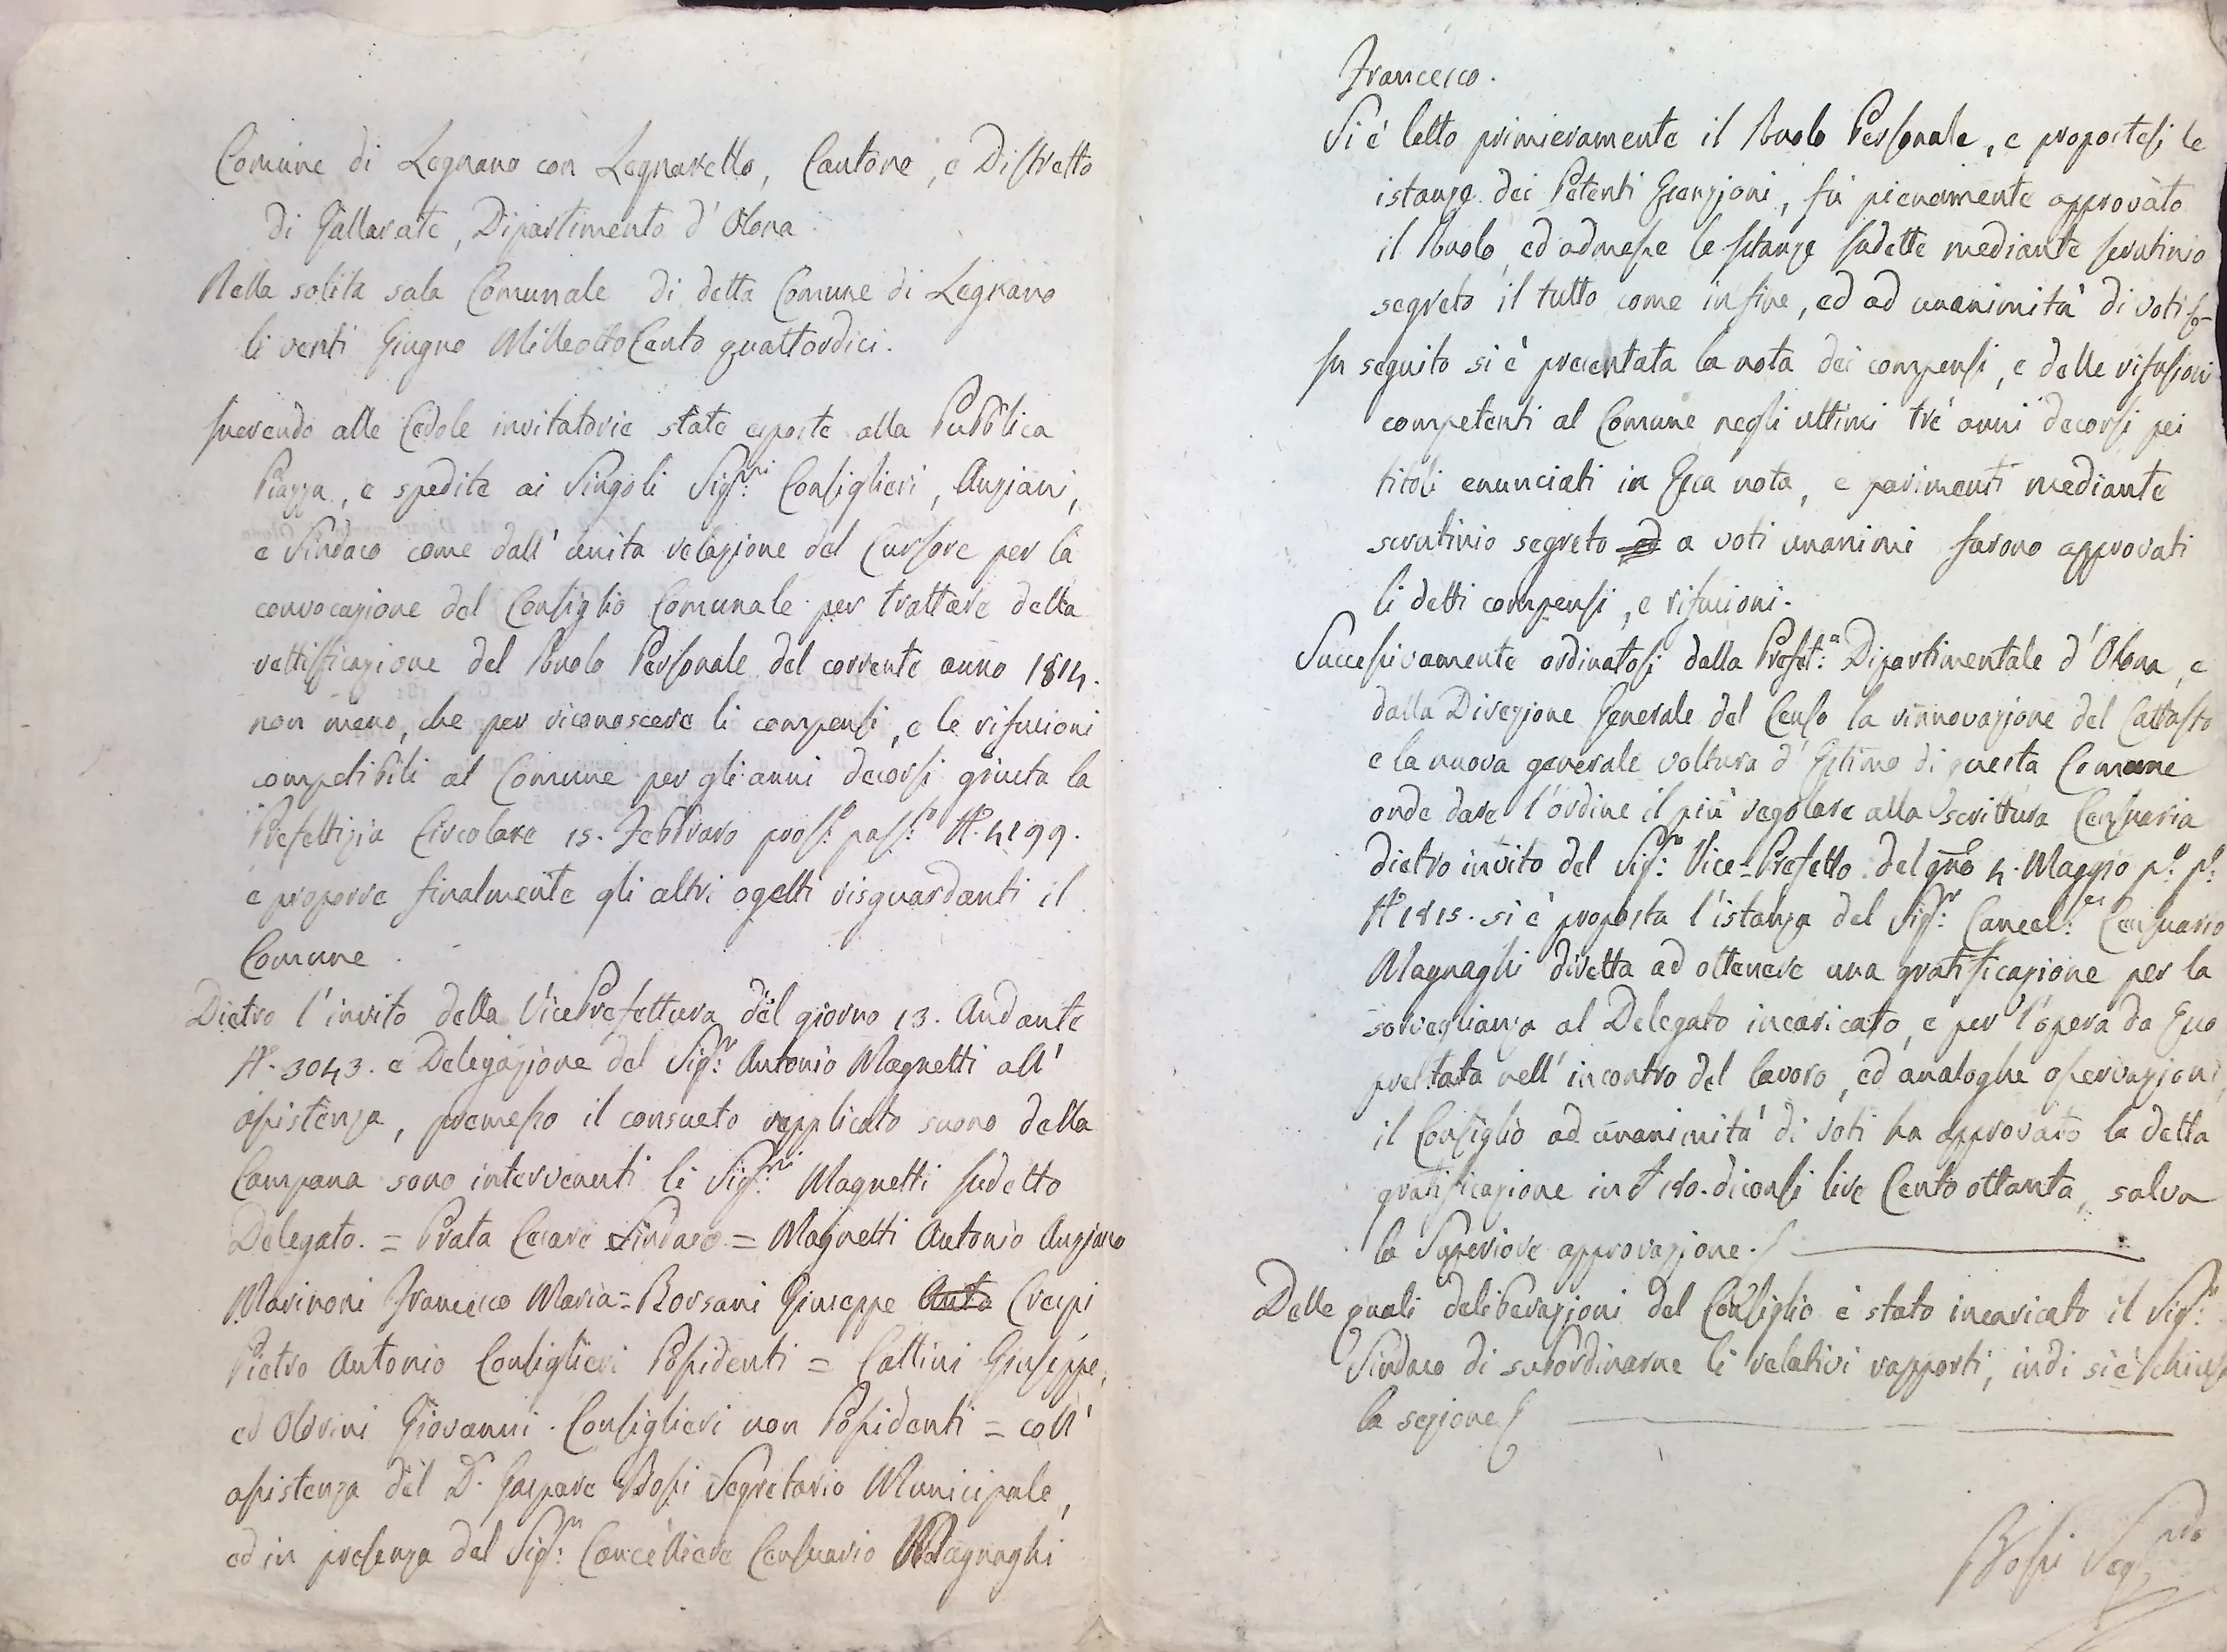 Comune di Legnano con Legnarello, Cantone, e Distretto
di Gallarate, Dipartimento d'Olona
Nella solita sala Comunale di detta Comune di Legnano
li venti Giugno MilleottoCento quattordici.
Inerendo alle Cedole invitatorie state esposte alla Pubblica
Piazza, e spedite ai Singoli Sig.ri Consiglieri, Anziani,
e Sindaco come dall'unita relazione del Cursore per la
convocazione del Consiglio Comunale per trattare della
rettifficazione del Ruolo Personale del corrente anno 1814.
non meno, che per riconoscere li compensi, e le rifusioni
competibili al Comune per gli anni decorsi giusta la
Prefettizia Circolare 15. Febbraro pros.o pass.o N.o 4199.
e proporre finalmente gli altri ogetti risguardanti il
Comune.
Dietro l'invito della VicePrefettura del giorno 13. Andante
N.o 3043. e Delegazione del Sig.r Antonio Magnetti all'
assistenza, premesso il consueto repplicato suono della
Campana sono intervenuti li Sig.ri Magnetti sudetto
Delegato. = Prata Cesare Sindaco = Magnetti Antonio Anziano
Marinoni Francesco Maria = Borsani Giuseppe Anto Crespi
Pietro Antonio Consiglieri Possidenti = Cattini Giuseppe,
ed Olorini Giovanni. Consiglieri non Possidenti = coll'
assistenza del D. Gaspare Bossi Segretario Municipale,
ed in presenza del Sig.r Cancelliere Censuario Magnaghi
Francesco.
Si è letto primieramente il Ruolo Personale, e propostesi le
istanze dei Petenti Esenzioni, fù pienamente approvato
il Ruolo, ed admesse le Istanze sudette mediante scrutinio
segreto il tutto come infine, ed ad unanimità di voti
In seguito si è presentata la nota dei compensi, e delle rifusioni
competenti al Comune negli ultimi trè anni decorsi pei
titoli enunciati in Essa nota, e parimenti mediante
scrutinio segreto ed a voti unanimi furono approvati
li detti compensi, e rifusioni.
Successivamente ordinatosi dalla Prefet.a Dipartimentale d'Olona, e
dalla Direzione Generale del Censo la rinnovazione del Cattasto
e la nuova generale voltura d'Estimo di questa Comune
onde dare l'ordine il più regolare alla scrittura Censuaria
dietro invito del Sig.r Vice-Prefetto del gno 4. Maggio p.o p.o
N.o 1815. si è proposta l'istanza del Sig.r Cancel.re Censuario
Magnaghi diretta ad ottenere una gratificazione per la
sorveglianza al Delegato incaricato, e per l'opera da Esso
prestata nell'incontro del lavoro, ed analoghe osservazioni,
il Consiglio ad unanimità di voti ha approvato la detta
gratificazione in £ 180. diconsi lire Cento ottanta, salva
la Superiore approvazione.
Delle quali deliberazioni del Consiglio è stato incaricato il Sig.r
Sindaco di subordinarne li relativi rapporti, indi si è chiusa
la sezione
Bossi Seg.